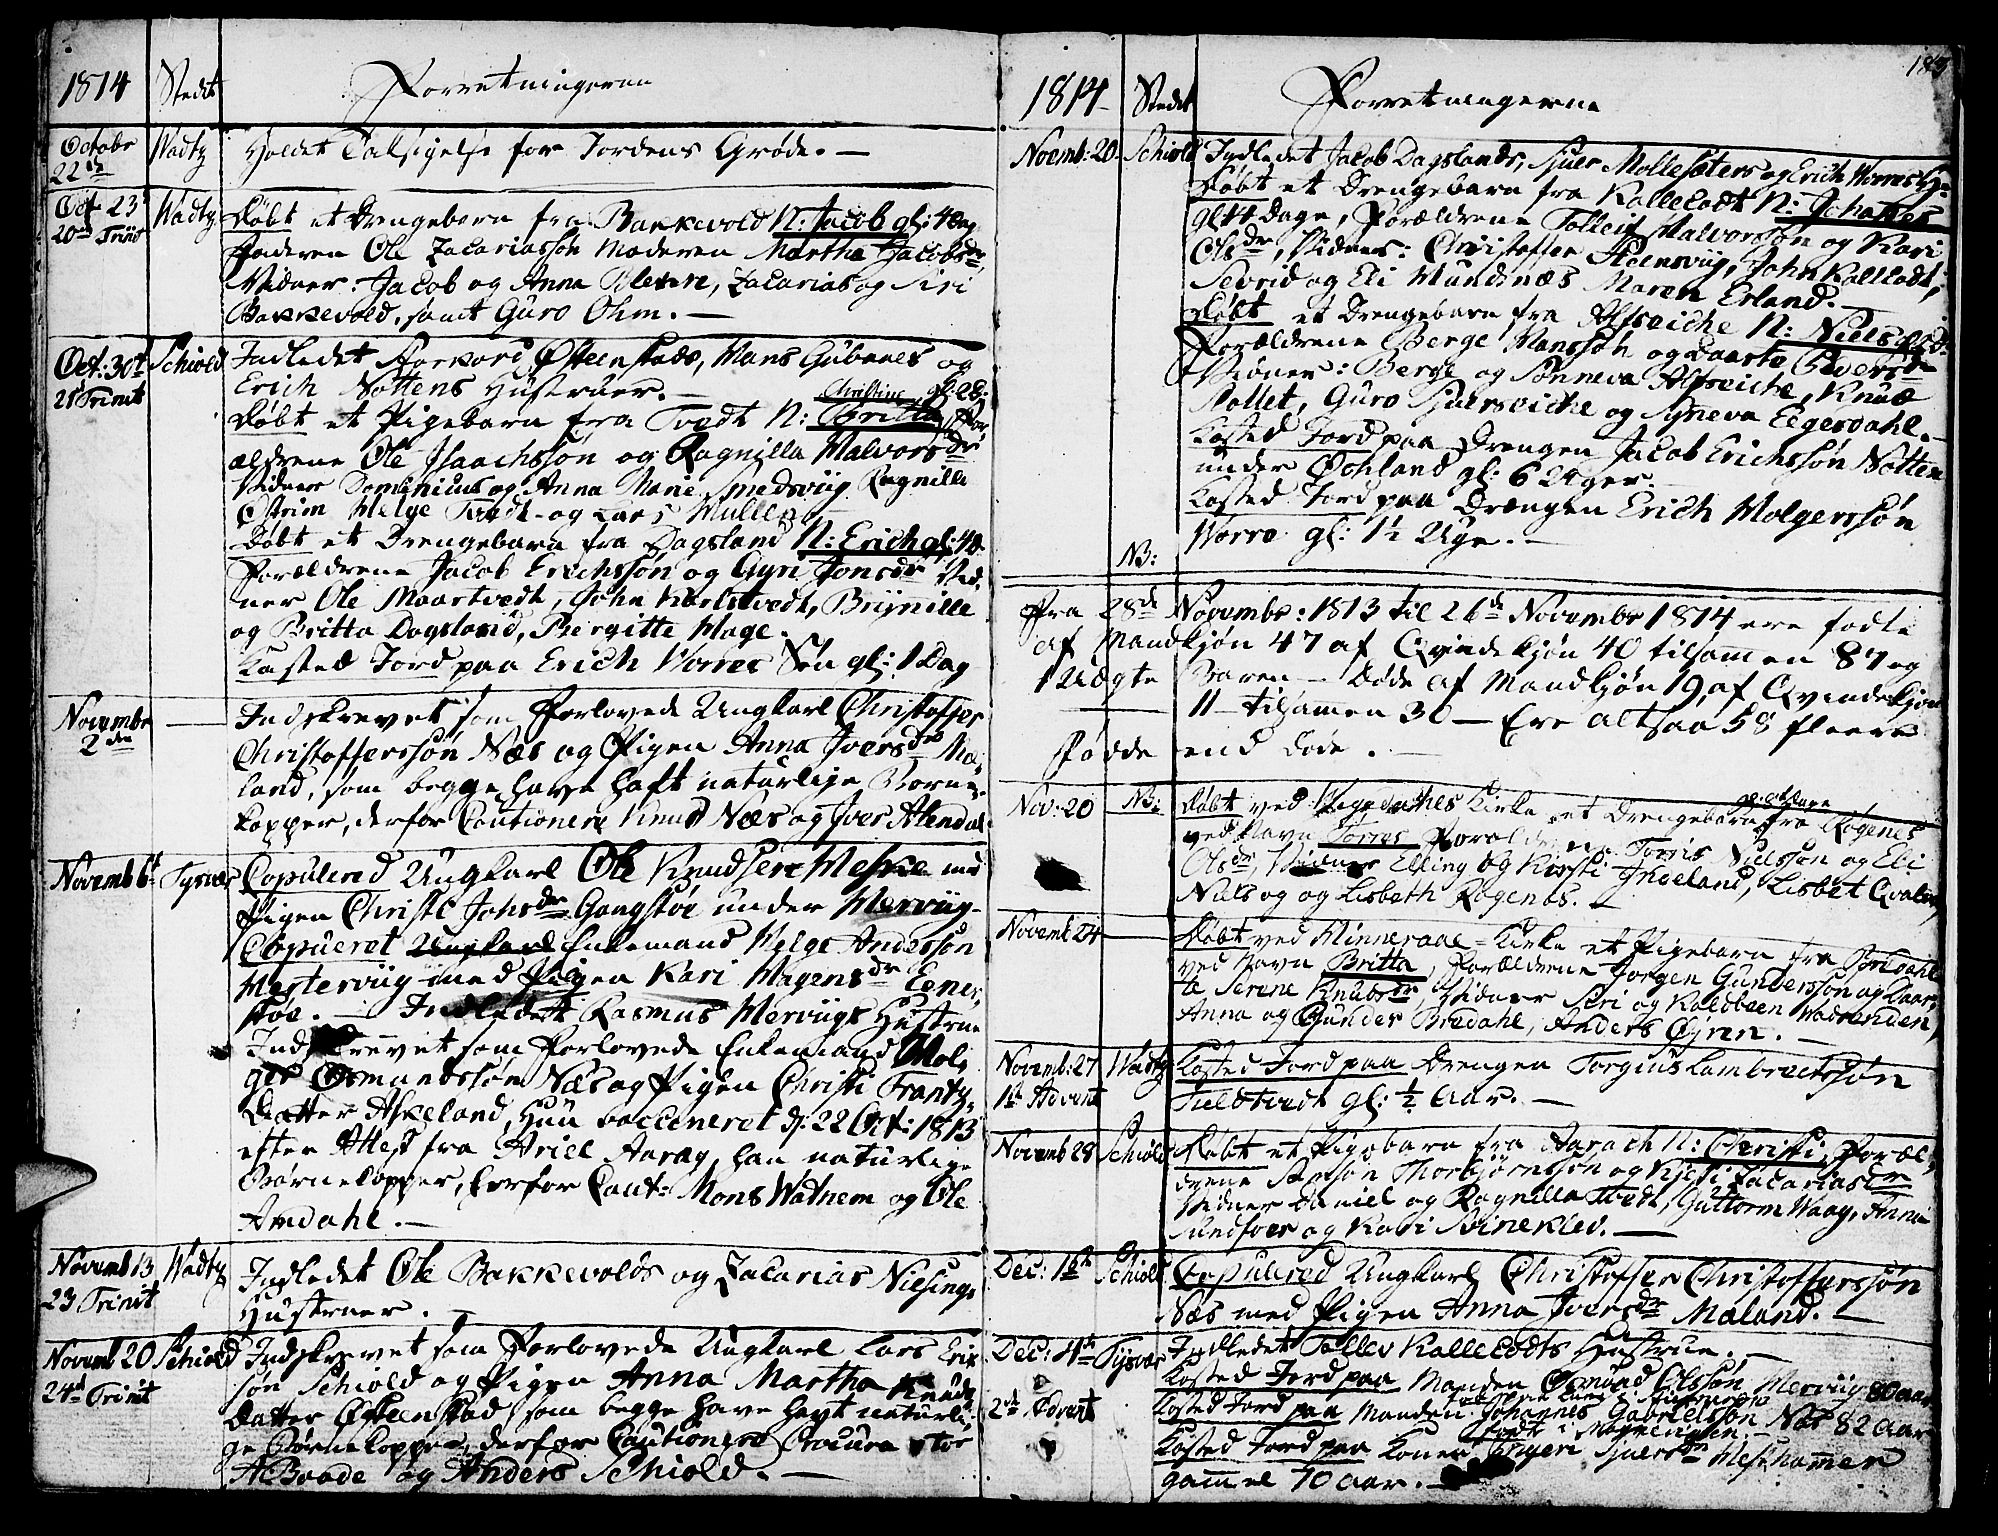 1814 Stedt Forretningerne
Octobr 22de Wadtz Holdet Taksigelse for Jordens Grøde. —
Oct. 23d 20de Trinit Wadtz Døbt et Drengebarn fra Bakkevold N: Jacob gl: 4 Dag
Faderen Ole Zacariassøn Moderen Martha Jacobsdr
Vidner Jacob og Anna Bleven, Zacarias og Siri
Bakkevold, samt Guro Ohm. —
Oct: 30t 21 Trinit Schiold Indledet Østeenstads, Hans Gubanes og
Erich Nottens Hustruer. —
Christine gl: 2
Døbt et Pigebarn fra Tvedt N: Britta, For
ældrene Ole Isaachssøn og Ragnilla Halvorsdr
Vidner Dominicus og Anna Marie Smedsviig Ragnille
Helge Tvedt og Lars Mullen
Døbt et Drengebarn fra Dagsland N: Erich gl: 4
Forældrene Jacob Erichssøn og Gyri Jonsdr Vid-
ner Ole Maartvedt, John Brynille
og Britta Dagsland, Bergitte Hage.
Kasted Jord paa Erich Worres Søn gl: 1 Dag
Novembr 2den — Indskrevet som Forlovede Ungkarl Christoffer
Christofferssøn Næs og Pigen Anna Iversdr Ma-
land, som begge have haft naturlige Borne-
kopper, derfor Cautionere Knud Næs og Iver Alendal
Novemb 6t Tysvær Copulered Ungkarl Ole Knudsen Heske med
Pigen Christi Johsdr Gangstøe under Hervüg
Copuleret Ungkarl Enkemand Helge Anderssøn
Mestervüg med Pigen Kari Magensdr Eenes
tøe. — Indledet Rasmus Hervügs Hustrue
Indskrevet som Forlovede Enkemand Hol-
ger Osmundssøn Næs og Pigen Christi Frantz
Datter Askeland, Hun vaccineret d: 22 Oct: 1813
efter Attest fra Ariel Aarag, han naturlige
Børnekopper, herfor Caut: Mons Wadnem og Ole
Amdahl. —
Novemb 13 23 Trinit Wadtz Indledet Ole Bakkevolds og Zacarias Nilsings
Hustruer. —
Novemb 20 24d Trinit Schiold Indskrevet som Forlovede Ungkarl Lars Erix
søn Schiold og Pigen Anna Martha Knuds
Datter Østeenstad, som begge have havt naturli-
ge Børnekopper, derfor Cautionere
A Baade og Anders Schiold. —
1814 Stedt Forretningerne
Novemb: 20 Schiold Indledet Jacob Dagslands, Sjuer Mollesæters og Erich Worres Hu
Døbt et Drengebarn fra Kallekodt N: Johannes
gl 14 Dage, Forældrene Tolleif Halvorssøn og Kari
Olsdr, Vidner: Christoffer Steensvüg, John Kallekodt,
Sevrid og Eli Mundenæs Maren Erland. —
Døbt et Drengebarn fra Alfseiche N: Niels
Forældrene Berge Hanssøn og Daarte Oversdr
Vidner: Berge og Sønneva Alfseiche, Knud
Mollet, Guro Sjuerseiche og Syneva Eegerdahl. —
Kasted Jord paa Drengen Jacob Erichssøn Notten
under Øchland gl: 6 Uger. —
Kasted Jord paa Drengen Erich Holgerssøn
Worre gl: 1½ Uge. —
NB:
Fra 28de Novembr: 1813 til 26de Novembr 1814 ere fødte
af Mandkjøn 47 af Qvindekjøn 40 tilsammen 87 og
1 Uægte Baren — Døde af Mandkjøn 19, af Qvindekjøn
11 — tilsamen 30 — Ere altsaa 58 fleere
Fødde end døde. —
Nov: 20 NB: Døbt ved Kirke et Drengebarn fra Røgenes
ved Navn Torres Forældrene Torris Nielssøn og Eli
Olsdr, Vidner Elling og Kirsti Lisbet
Niels og og Lisbeth Røgenes. —
Novemb 24 — Døbt ved Hinneraae Kirke et Pigebarn fra Bredahl
ved Navn Britta, Forældrene Jørgen Gunderssøn og Daar-
te Serene Knudsdr, Vidner Seri og
Anna og Gunder Bredahl, Anders Øjren. —
Novemb: 27 1st Advent Wadtz Kasted Jord paa Drengen Torgius Lambrechtssøn
Tuledtvedt gl: ½ Aar. —
Novemb 28 Schiold Døbt et Pigebarn fra Aarach N: Christi, Foræl-
drene Samson Thorbjørnssøn og Kirsti Zacariasdr
Vidner Daniel og Ragnilla Tvedt, Guttorm Waag, Anna
Sundfoer og Kari Bineklev. —
Dec: 1st Schiold Copulered Ungkarl Christoffer Christofferssøn
Næs med Pigen Anna Iversdr Maland. —
Dec: 4de 2d Advent Tysvær Indledet Tollev Kallekodts Hustrue. —
Kasted Jord paa Manden Osmund Olssøn Hervüg 80 Aar
Kasted Jord paa Manden Johannes Gabrielssøn Næs 82 Aar
Kasted Jord paa Konen Sjuersdr Westhammer
gammel 70 Aar. —